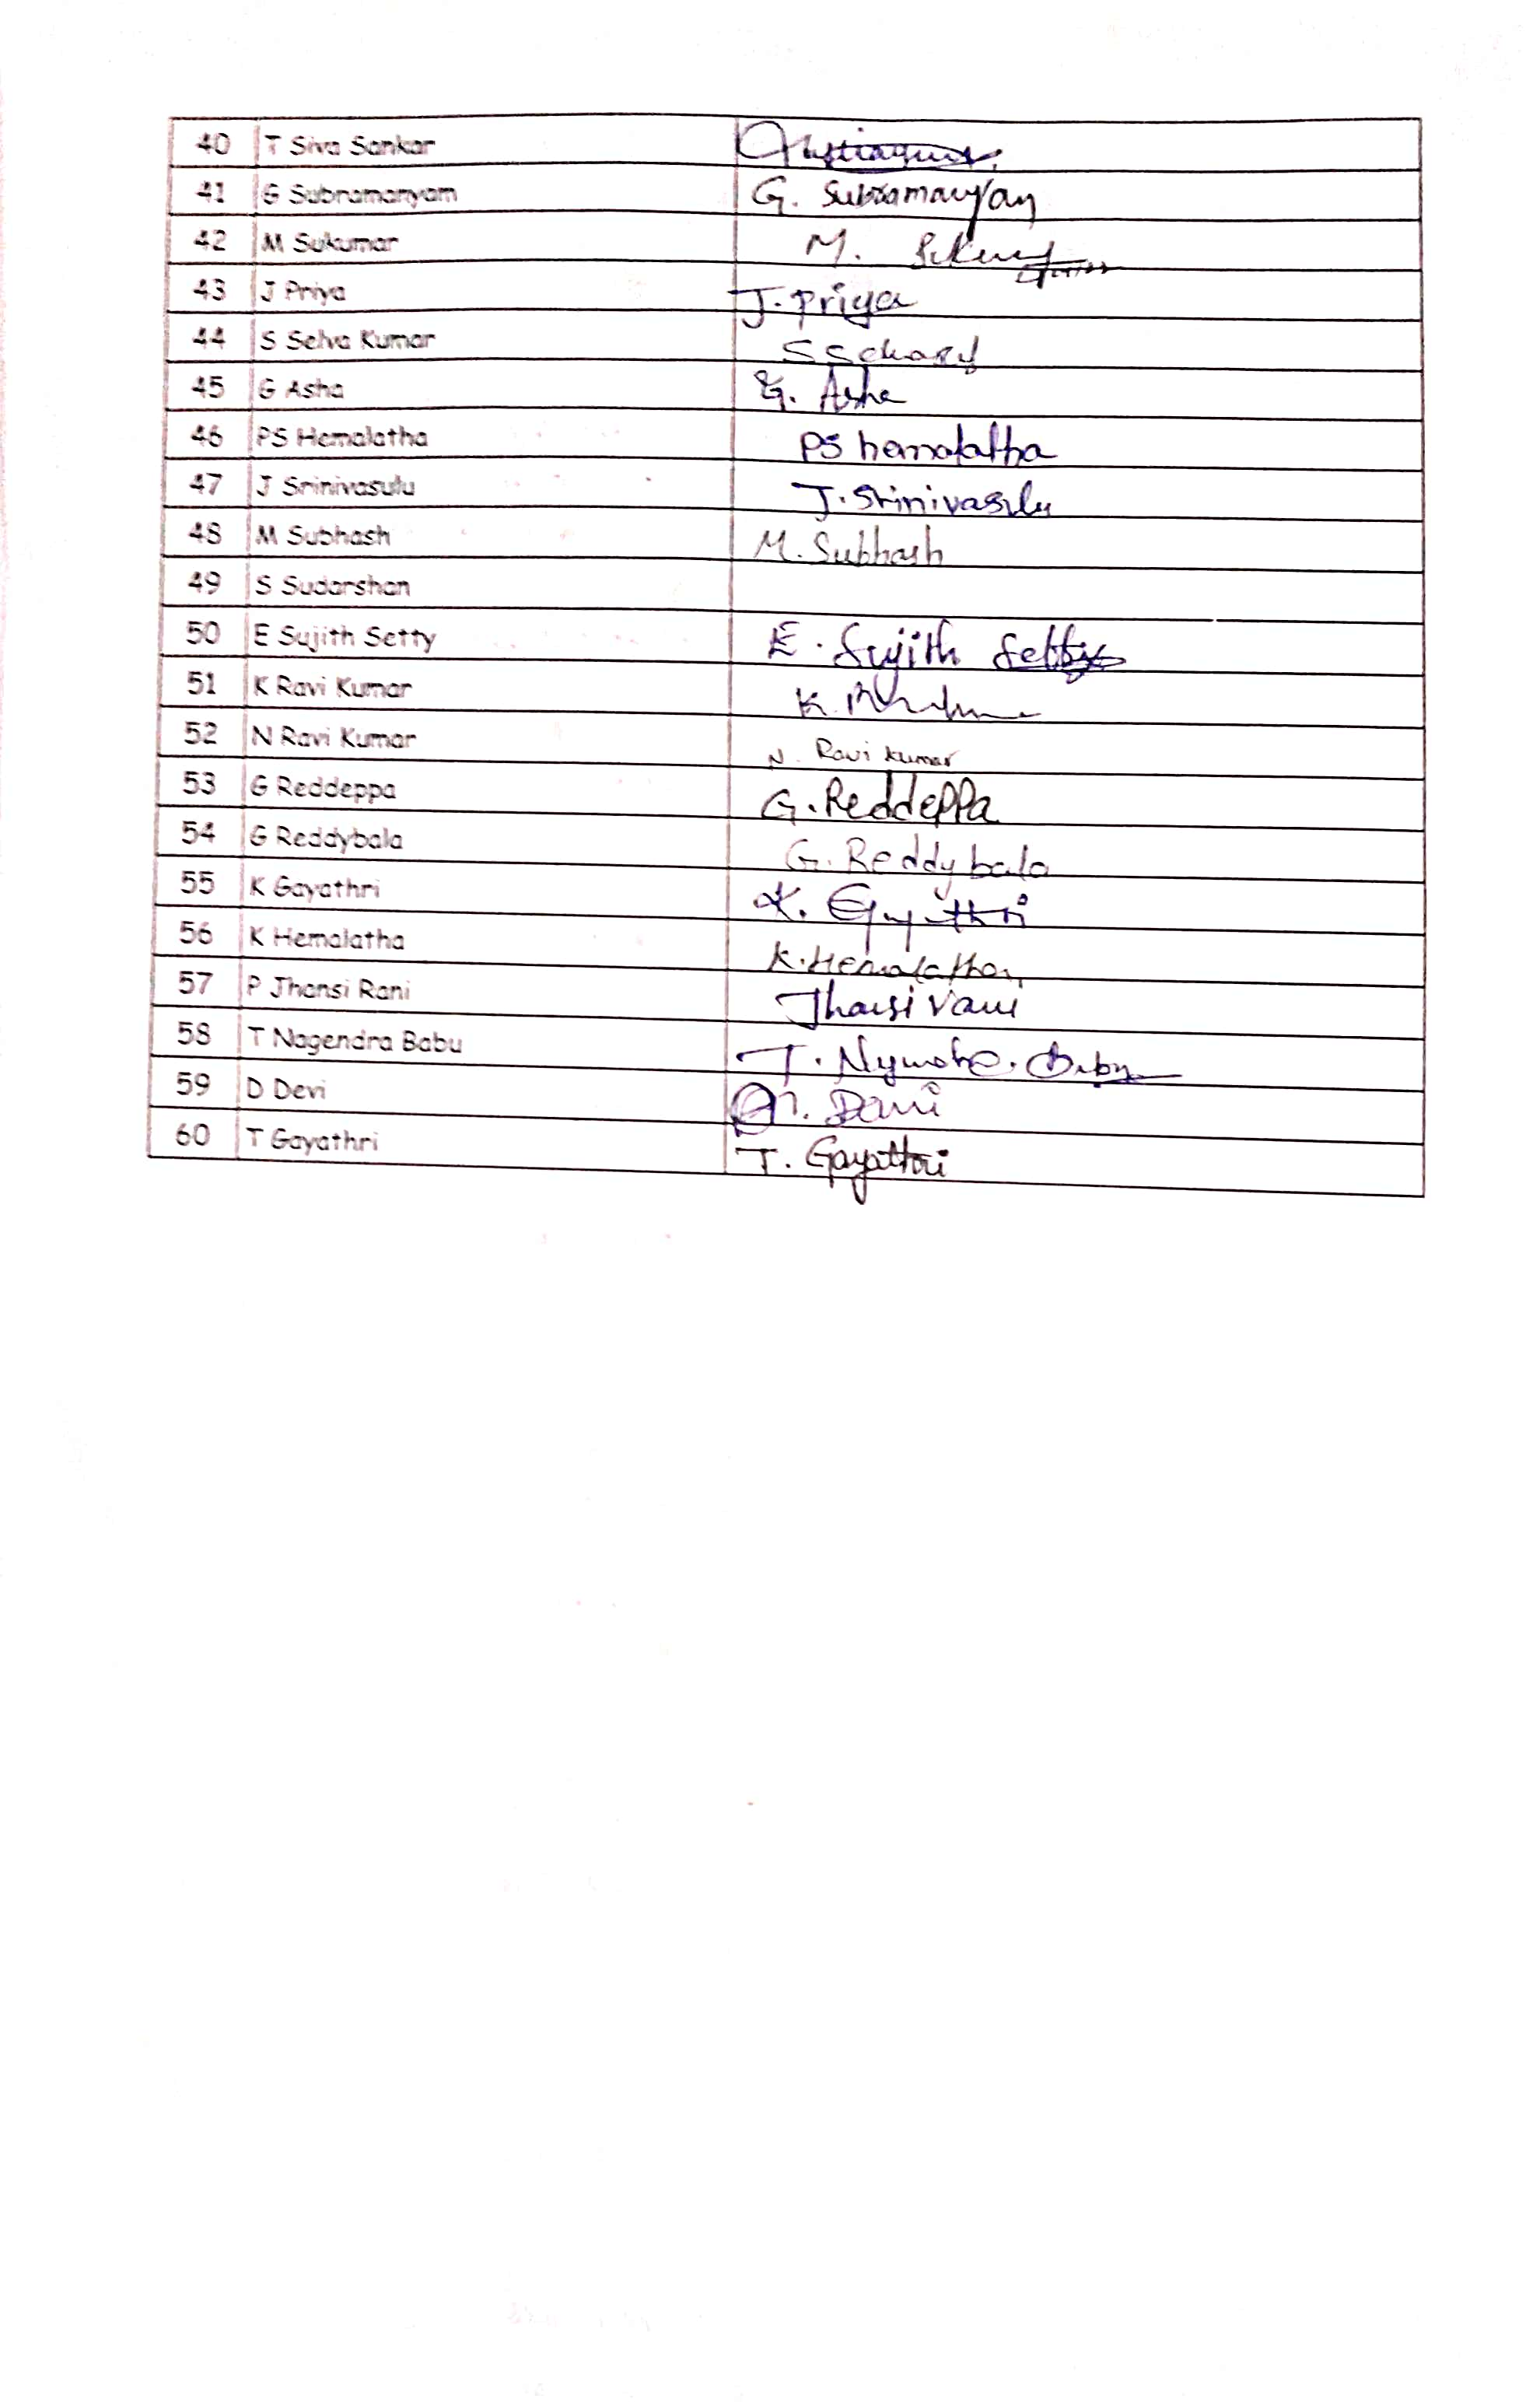 40 T Siva Sankar
41 G Subramanyam G. Subramanyan
42 M Sukumar M.
43 J Priya J. Priya
44 S Selva Kumar
45 G Asha G. Asha
46 PS Hemalatha PS hemalatha
47 J Srinivasulu J. Srinivasulu
48 M Subhash M. Subhash
49 S Sudarshan
50 E Sujith Setty E. Sujith Setty
51 K Ravi Kumar K.
52 N Ravi Kumar N. Ravi Kumar
53 G Reddeppa G. Reddeppa
54 G Reddybala G. Reddy bala
55 K Gayathri K. Gayathri
56 K Hemalatha K. Hemalatha
57 P Jhansi Rani Jhansi rani
58 T Nagendra Babu T. Babu
59 D Devi Devi
60 T Gayathri T. Gayathri